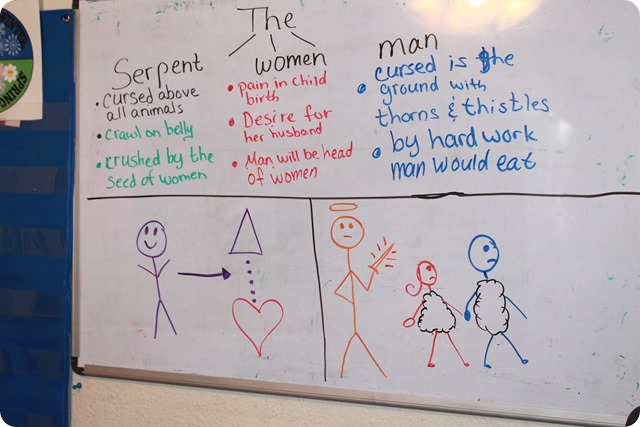 The
Serpent
• cursed above
all animals
• crawl on belly
• crushed by the
seed of women
women
• pain in child
birth
• Desire for
her husband
• Man will be head
of women
man
• cursed is the
ground with
thorns & thistles
• by hard work
man would eat
SPRING